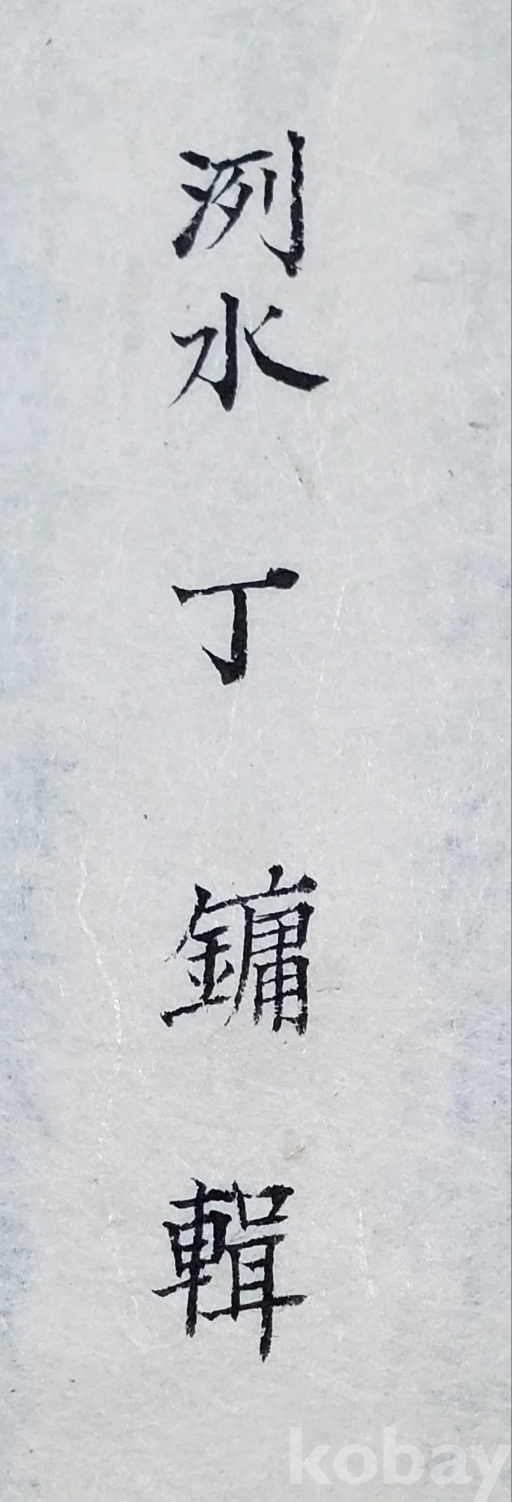 洌水 丁 鏞 輯
kobay